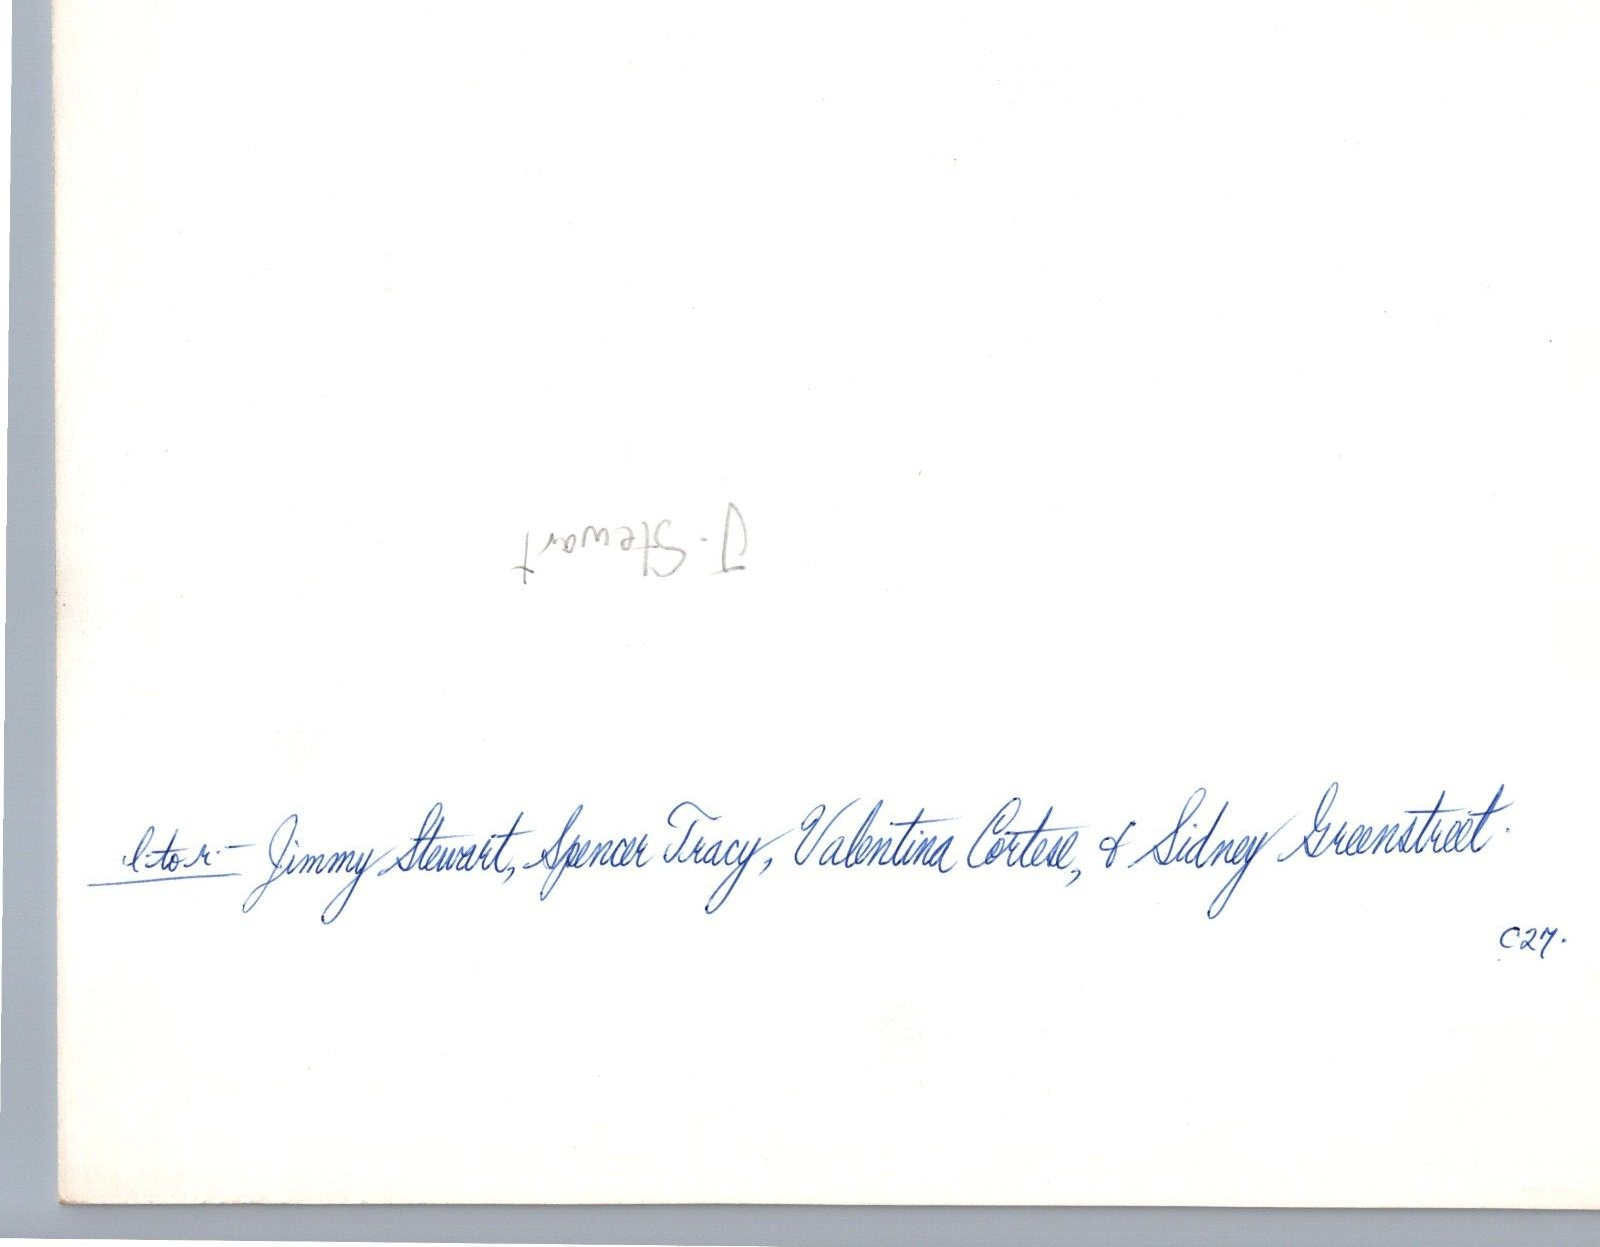 J. Stewart
l. to r. - Jimmy Stewart, Spencer Tracy, Valentina Cortese, & Sidney Greenstreet.
C27.